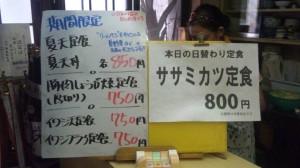 期間限定
夏天定食
夏天丼 各850円
豚肉しょうが焼定食
(厚切り) 750円
イワシ天定食 750円
イワシフライ定食 750円
本日の日替わり定食
ササミカツ定食
800円